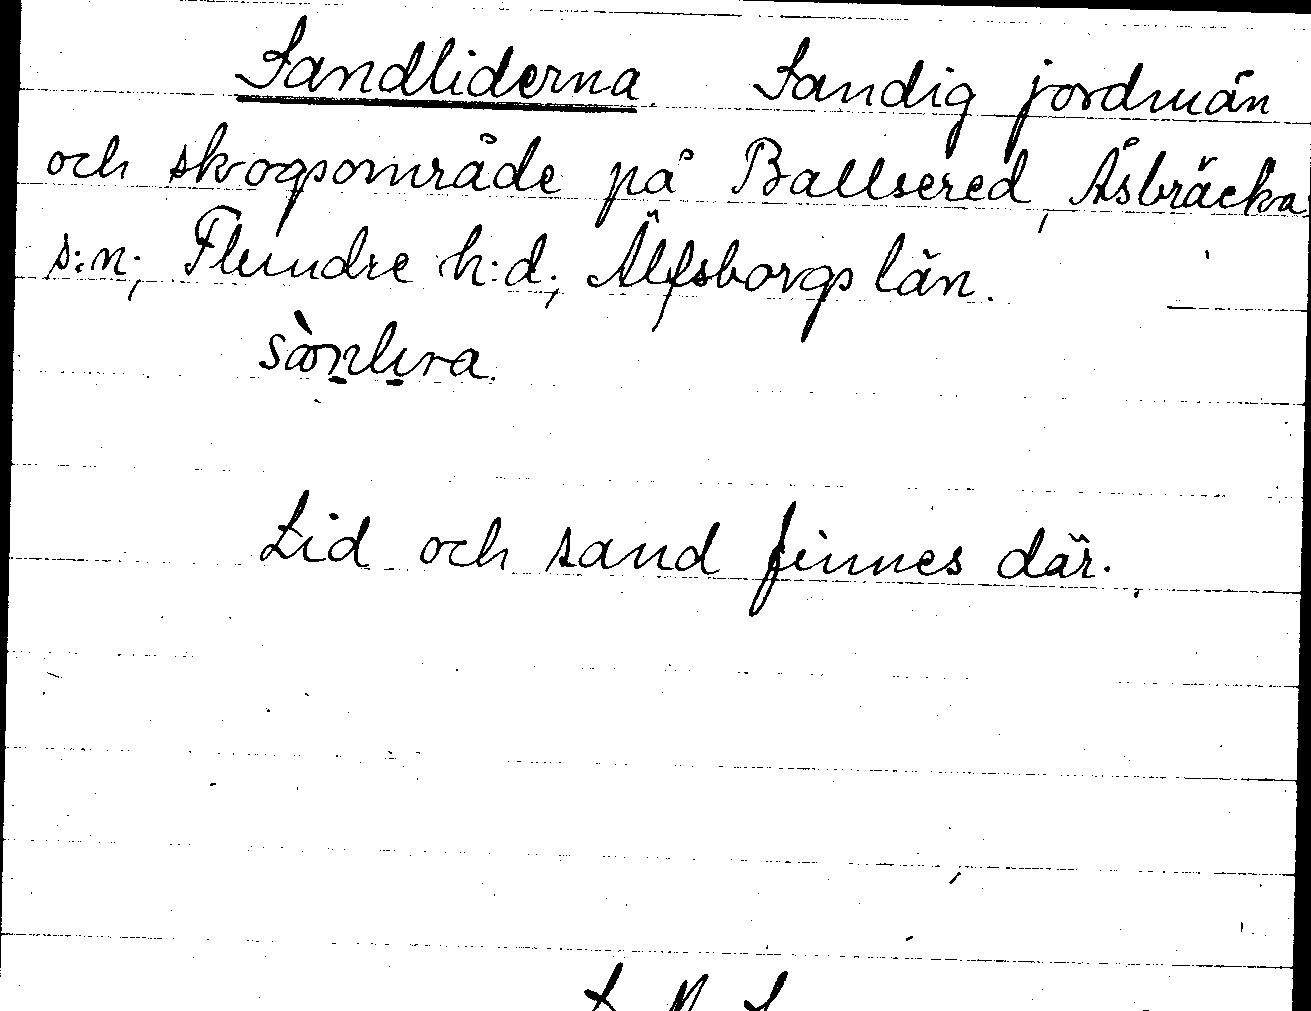 Sandliderna. Sandig jordmån
och skogsområde på Ballsered, Åsbräcka
s:n; Flundre h:d; Älfsborgs län.
Lid och sand finnes där.